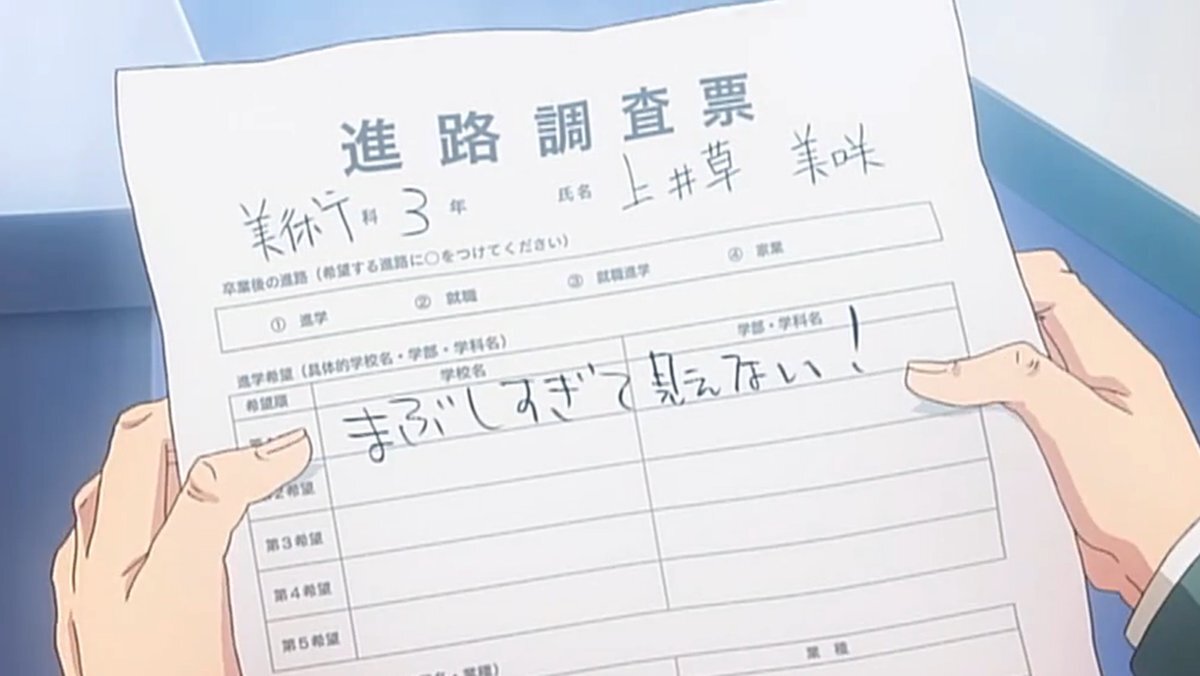 進路調査票
美術科 3年 氏名 上井草 美咲
卒業後の進路（希望する進路に○をつけてください）
① 進学 ② 就職 ③ 就職進学 ④ 家業
進学希望（具体的学校名・学部・学科名）
希望順 学校名 学部・学科名
まぶしすぎて見えない！
2希望
第3希望
第4希望
第5希望
名・業種）
業種